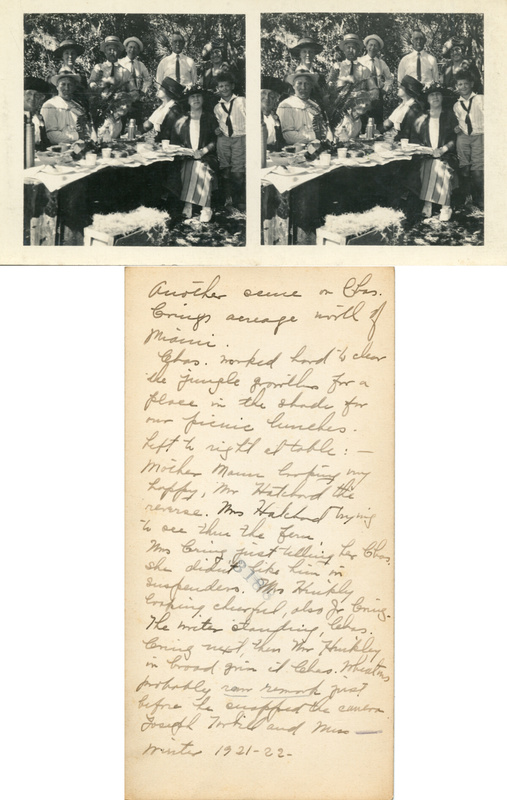 Another scene on Chas.
Crings acreage north of
Miami.
Chas. worked hard to clear
the jungle growths for a
place in the shade for
our picnic lunches.
Left to right at table: —
Mother Mann looking very
happy, Mr Hatchard the
reverse. Mrs Hatchard trying
to see thru the fern,
Mrs Cring just telling her Chas.
she didn't like him in
suspenders. Mrs Hinkley
looking cheerful, also Jr Cring.
The writer standing, Chas.
Cring next, then Mr Hinkley
in broad grin at Chas.
probably raw remark just
before he snapped the camera
Joseph and Miss —
Winter 1921-22-